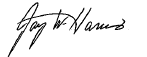 Jay W. Harris